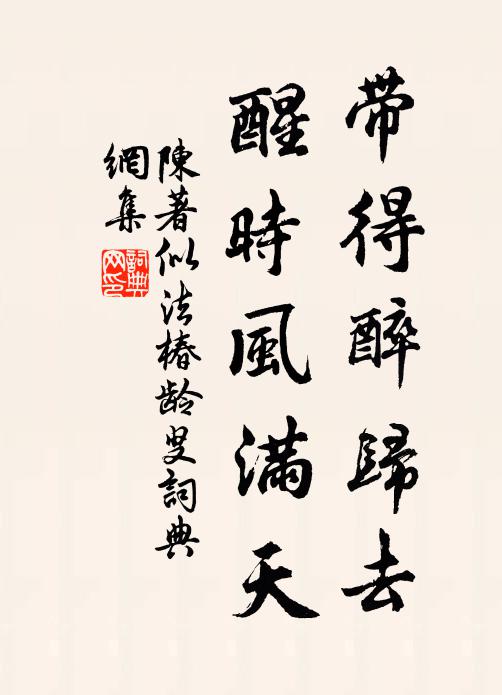 带得醉歸去
醒時風滿天
陳著似法椿齡叟詞典
網集
詞典
网印